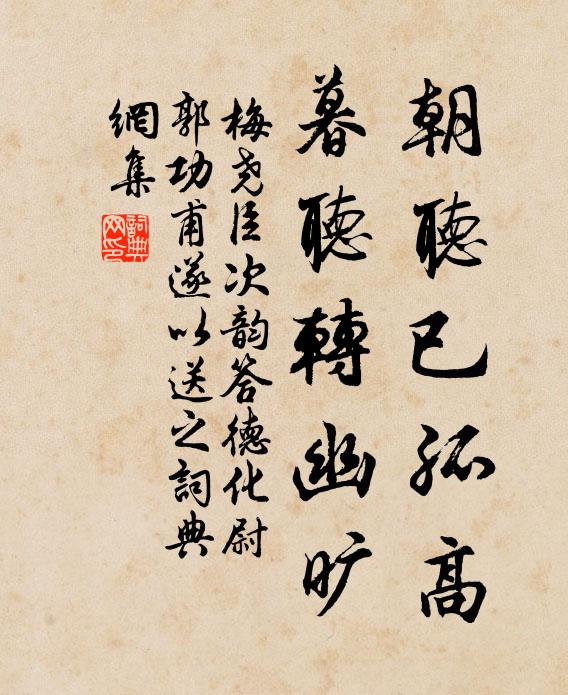 朝聽已孤高
暮聽轉幽旷
梅尧臣次韵答德化尉
郭功甫遂以送之詞典
網集
詞典
网印